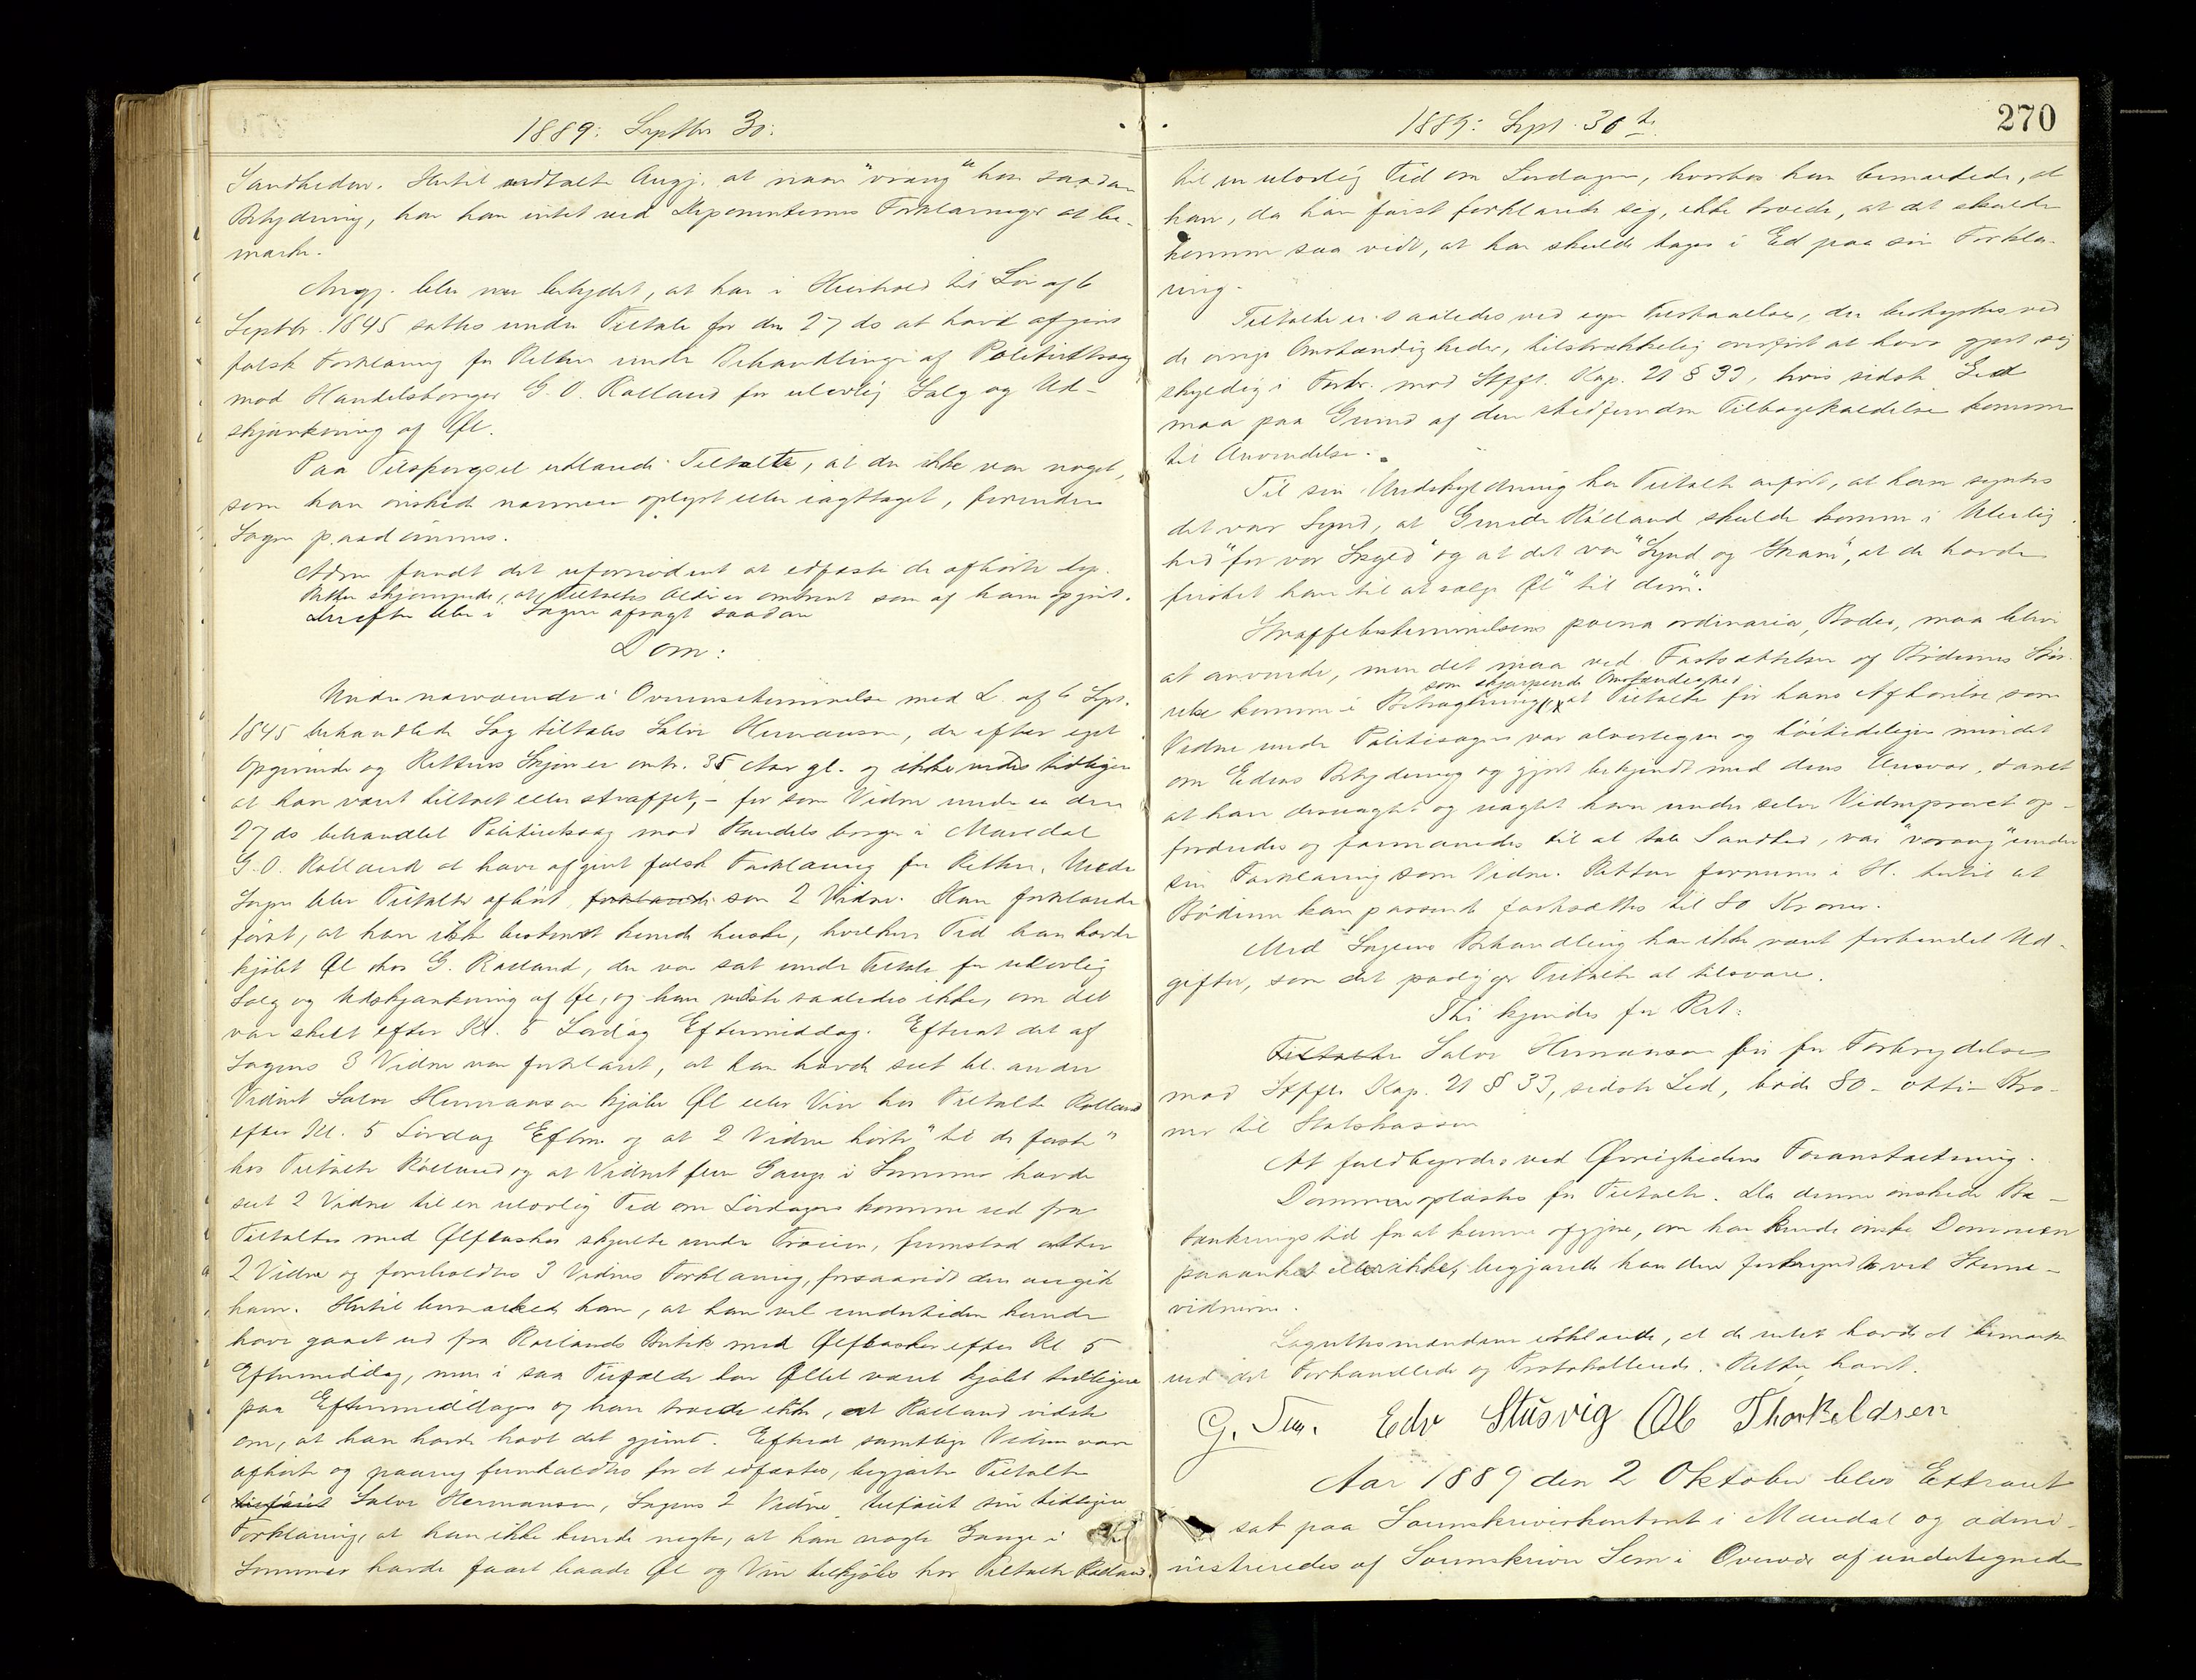 1889: Septbr 30.
Sandheden. Hertil udtalte Angj. at naar "vrang" har saadan
Betydning, har han intet ved Deponenternes Forklaringer at be-
mærke.
Angj. blev nu betydet, at han i Henhold til Lov af 6
Septbr. 1845 sattes under Tiltale for den 27 ds at have afgivet
falsk Forklaring for Retten under Behandlingen af Politiretssag
mod Handelsborger G. O. Rølland for ulovlig Salg og Ud-
skjænkning af Øl.
Paa Tilspørgsel erklærede Tiltalte, at der ikke var noget,
som han ønskede nærmere oplyst eller iagttaget, forinden
Sagen paadømmes.
Adm. fandt det ufornødent at edfæste de afhørte Dep.
Retten skjønnede, at Tiltaltes Alder er omtrent som af ham opgivet.
Derefter blev i Sagen afsagt saadan
Dom:
Under nærværende i Overensstemmelse med L. af 6 Sept.
1845 behandlede Sag tiltales Salve Hermansen, der efter eget
Opgivende og Rettens Skjøn er omtr. 35 Aar gl. og ikke vides tidligere
at have været tiltalt eller straffet, – for som Vidne under en den
27 ds behandlet Politiretssag mod Handelsborger i Mandal
G. O. Rølland at have afgivet falsk Forklaring for Retten. Under
Sagen blev Tiltalte afhørt forklarede som 2 Vidne. Han forklarede
først, at han ikke bestemt kunde huske, hvilken Tid han havde
kjøbt Øl hos G. Rølland, der var sat under Tiltale for ulovlig
Salg og Udskjænkning af Øl, og han vidste saaledes ikke, om det
var skeet efter Kl. 5 Lørdag Eftermiddag. Efterat det af
Sagens 3 Vidne var forklaret, at han havde seet bl. andre
Vidnet Salve Hermansen kjøbe Øl eller Vin hos Tiltalte Rølland
efter Kl. 5 Lørdag Efterm. og at 2 Vidne hørte "til de faste"
hos Tiltalte Rølland og at Vidnet flere Gange i Sommer havde
seet 2 Vidne til en ulovlig Tid om Lørdagen komme ud fra
Tiltaltes med Ølflasker skjulte under Trøien, fremstod atter
2 Vidne og foreholdtes 3 Vidnes Forklaring, forsaavidt den angik
ham. Hertil bemærkede han, at han vel undertiden kunde
have gaaet ud fra Røllands Butik med Ølflasker efter Kl 5
Eftermiddag, men i saa Tilfælde har Øllet været kjøbt tidligere
paa Eftermiddagen og han troede ikke, at Rølland vidste
om, at han havde havt det gjemt. Efterat samtlige Vidner var
afhørte og paany fremkaldtes for at edfæstes, begjærte Tiltalte
tilføiet Salve Hermansen, Sagens 2 Vidne, tilføiet sin tidligere
Forklaring, at han ikke kunde negte, at han nogle Gange i
Sommer havde faaet baade Øl og Vin tilkjøbs hos Tiltalte Rølland
1889: Sept. 30te
270
til en ulovlig Tid om Lørdagen, hvorhos han bemærkede, at
han, da han først forklarede sig, ikke troede, at det skulde
komme saa vidt, at han skulde tages i Ed paa sin Forkla-
ring.
Tiltalte er saaledes ved egen Tilstaaelse, der bestyrkes ved
de øvrige Omstændigheder, tilstrækkelig overført at have gjort sig
skyldig i Forbr. mod Strfl. Kap. 21 § 33, hvis sidste Led
maa paa Grund af den stedfundne Tilbagekaldelse komme
til Anvendelse.
Til sin Undskyldning har Tiltalte anført, at han syntes
det var Synd, at Gunde Rølland skulde komme i Uleilig-
hed "for vor Skyld" og at det var "Synd og Skam", at de havde
fristet ham til at sælge Øl "til dem".
Straffebestemmelsens poena ordinaria, Bøder, maa blive
at anvende, men det maa ved Fastsættelsen af Bødernes Stør-
som skjærpende Omstændighed
relse komme i Betragtning, at Tiltalte før hans Afhørelse som
Vidne under Politisagen var alvorligen og høitideligen mindet
om Edens Betydning og gjort bekjendt med dens Ansvar, samt
at han desuagtet og uagtet han under selve Vidneprovet op-
fordredes og formanedes til at tale Sandhed, var "vrang" under
sin Forklaring som Vidne. Retten formener i H. hertil at
Bøderne kan passende fastsættes til 80 Kroner.
Med Sagens Behandling har ikke været forbundet Ud-
gifter, som det paaligger Tiltalte at tilsvare.
Thi kjendes for Ret:
Tiltalte Salve Hermansen bør for Forbrydelse
mod Strfls Kap. 21 § 33, sidste Led, bøde 80 – otti – Kro-
ner til Statskassen
At fuldbyrdes ved Øvrighedens Foranstaltning.
Dommen oplæstes for Tiltalte. Da denne ønskede Be-
tænkningstid for at kunne afgjøre, om han kunde ønske Dommen
paaanket eller ikke, begjærede han den forkyndt ved Stevne-
vidnerne.
Lagrettesmændene erklærede, at de intet havde at bemærke
ved det Forhandlede og Protokollerede. Retten hævet.
G. Sem. Edv Stusvig Ol Thorkeldsen
Aar 1889 den 2 Oktober blev Extraret
sat paa Sorenskriverkontoret i Mandal og admi-
nistreredes af Sorenskriver Sem i Overvær af undertegnede